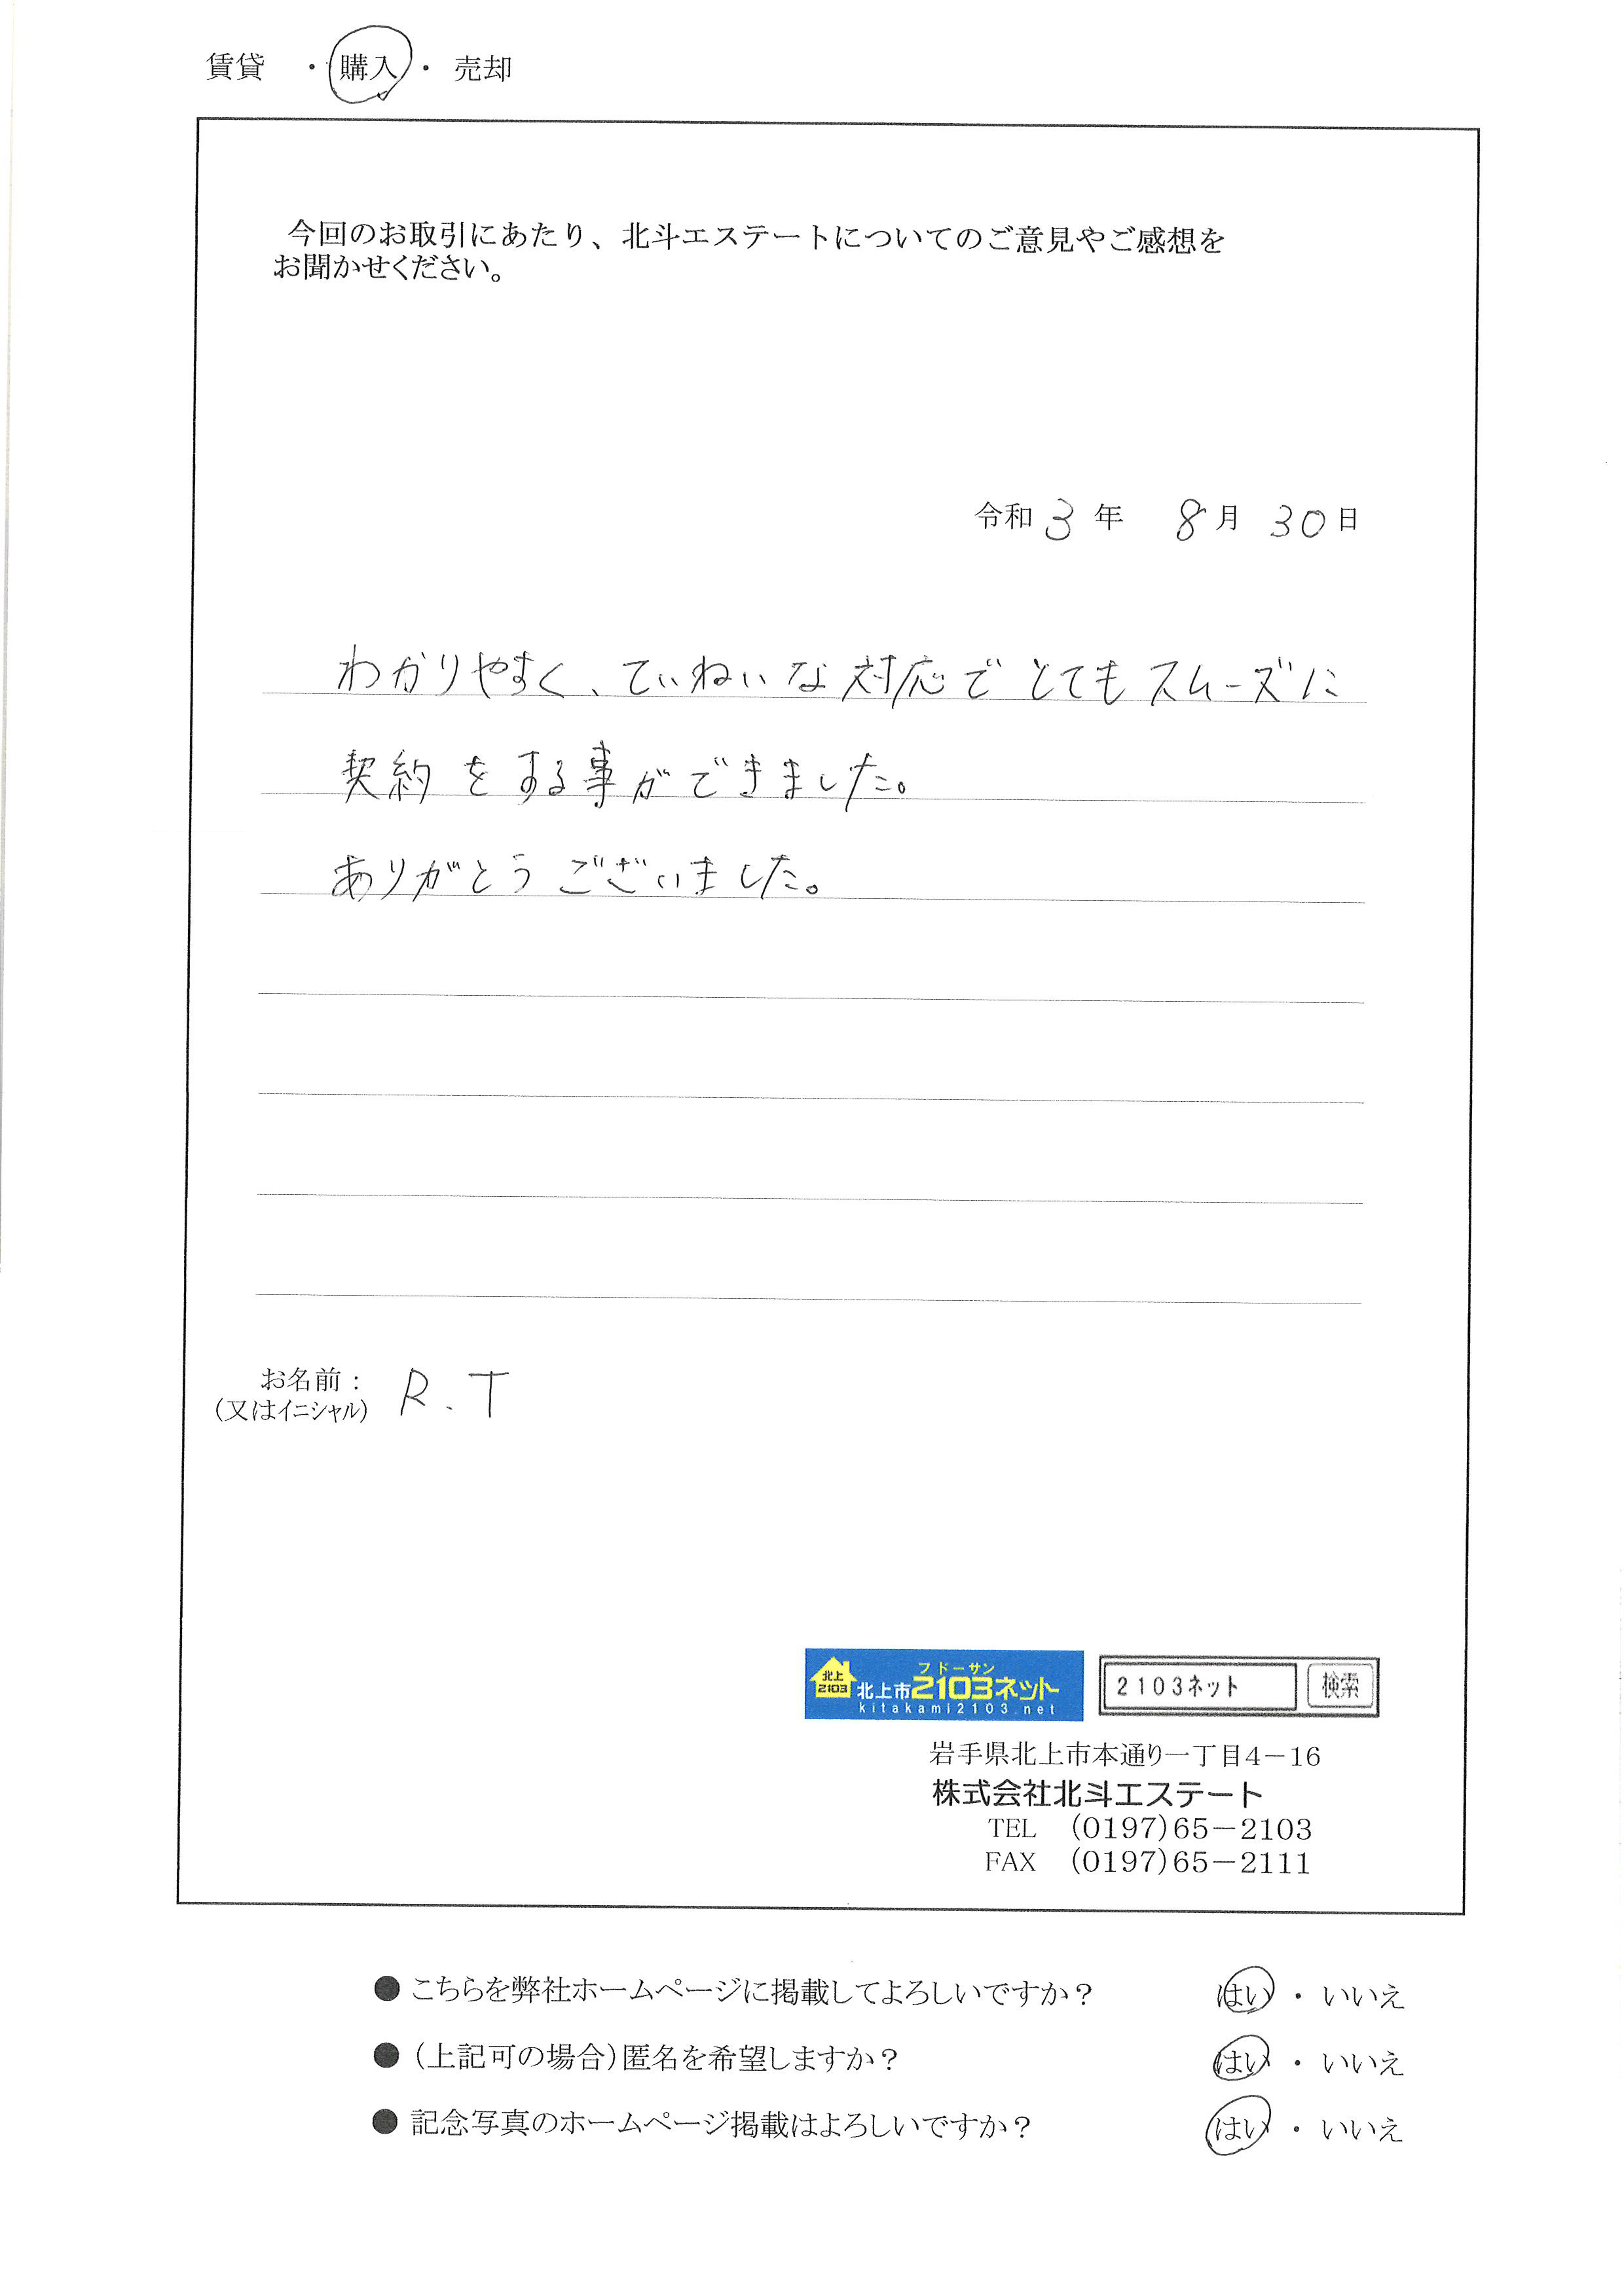 賃貸 ・ 購入 ・ 売却
今回のお取引にあたり、北斗エステートについてのご意見やご感想を
お聞かせください。
令和 3 年 8 月 30 日
わかりやすく、ていねいな対応でとてもスムーズに
契約をする事ができました。
ありがとうございました。
お名前：
（又はイニシャル） R.T
北上
2103
フドーサン
北上市2103ネット
kitakami2103.net
2103ネット 検索
岩手県北上市本通り一丁目4－16
株式会社北斗エステート
TEL （0197）65－2103
FAX （0197）65－2111
● こちらを弊社ホームページに掲載してよろしいですか？ はい ・ いいえ
● （上記可の場合）匿名を希望しますか？ はい ・ いいえ
● 記念写真のホームページ掲載はよろしいですか？ はい ・ いいえ